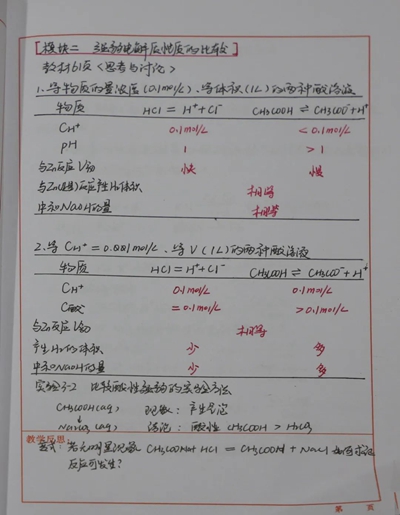 [模块二 强弱电解质性质的比较]
教材61页<思考与讨论>
1、等物质的量浓度(0.1mol/L)、等体积(1L)的两种酸溶液
物质 HCl = H⁺+Cl⁻ CH₃COOH ⇌ CH₃COO⁻+H⁺
CH⁺ 0.1mol/L <0.1mol/L
pH 1 >1
与Zn反应V初 快 慢
与Zn(足量)反应产生H₂体积 相等
中和NaOH的量 相等
2、等CH⁺=0.001mol/L、等V(1L)的两种酸溶液
物质 HCl=H⁺+Cl⁻ CH₃COOH ⇌ CH₃COO⁻+H⁺
CH⁺ 0.1mol/L 0.1mol/L
C酸 =0.1mol/L >0.1mol/L
与Zn反应V初 相等
产生H₂的体积 少 多
中和NaOH的量 少 多
实验3-2 比较酸性强弱的实验方法
CH₃COOH(aq) 现象:产生气泡
↓
(aq) 结论:酸性 CH₃COOH > H₂CO₃
教学反思:
若无明显现象 CH₃COONa+HCl = CH₃COOH+NaCl 如何求证
反应可发生?
第 页